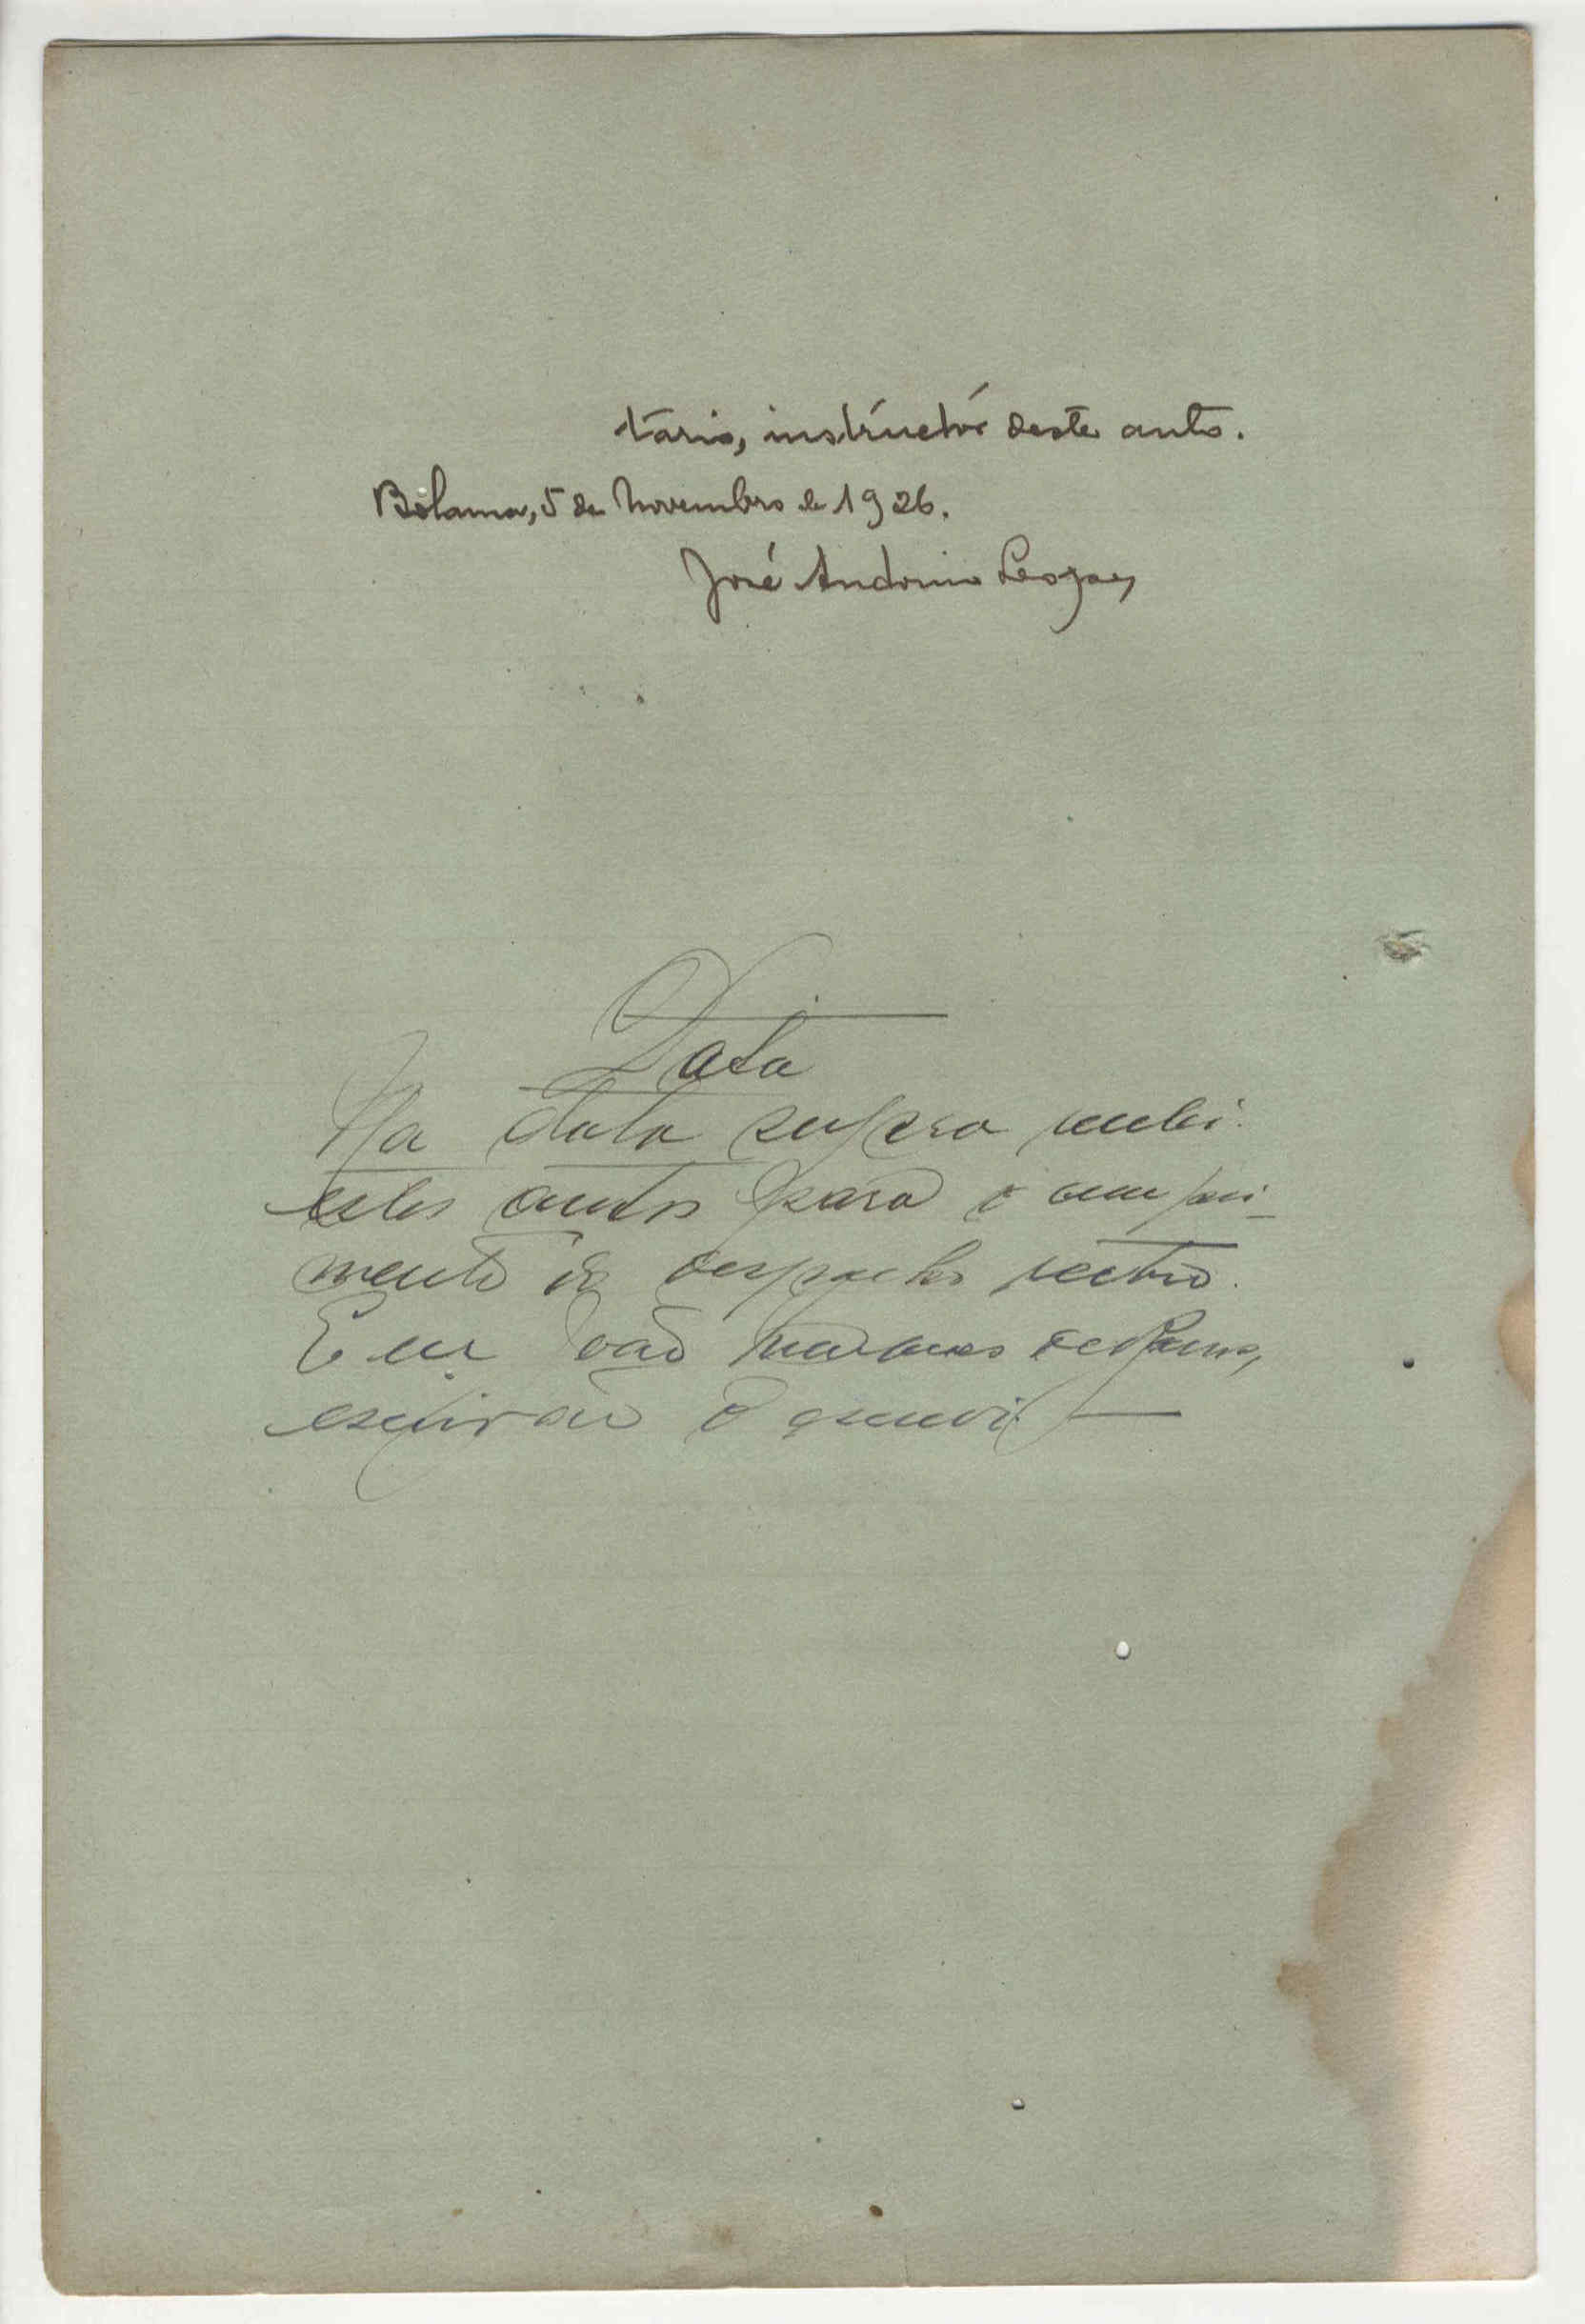 tário, instructor deste auto.
Bolama, 5 de Novembro de 1926.
José Antonio
Data
Na data supra recebi
estes autos para o cumpri-
mento do despacho retro.
Eu João Marques de
escrivão o escrevi